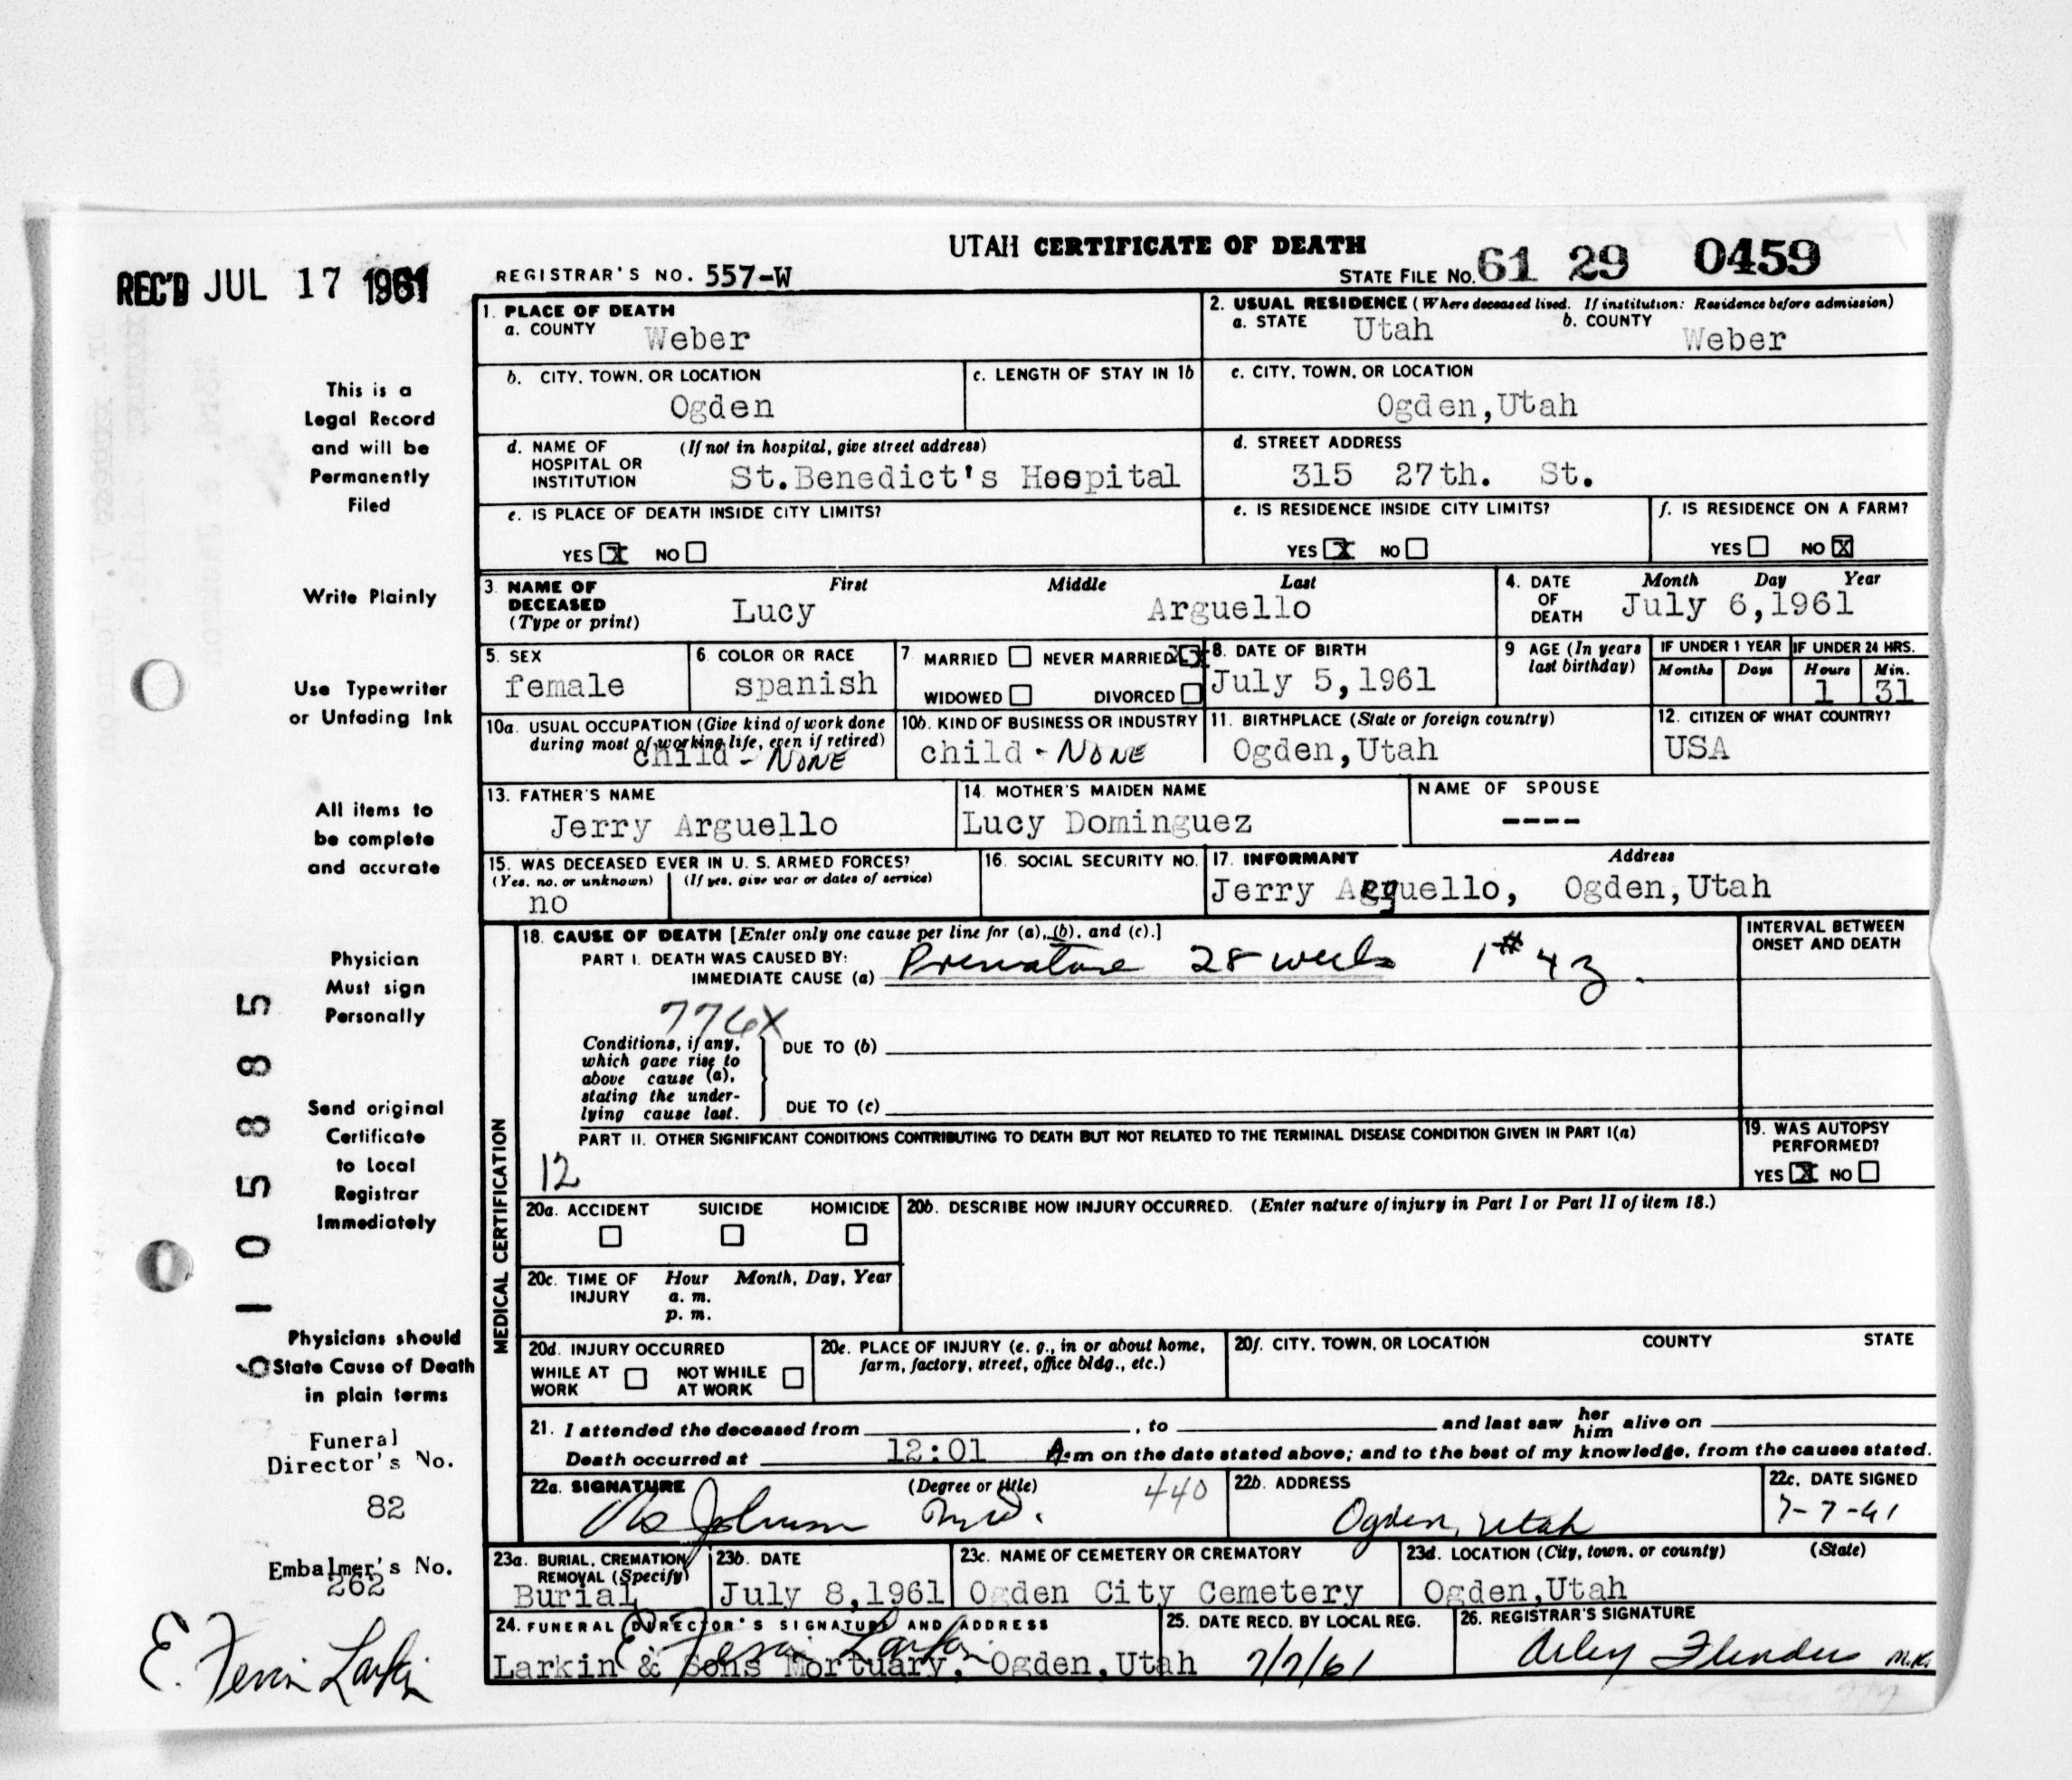 UTAH CERTIFICATE OF DEATH
REC'D JUL 17 1961
REGISTRAR'S NO. 557-W
STATE FILE NO. 61 29 0459
1. PLACE OF DEATH
a. COUNTY Weber
2. USUAL RESIDENCE (Where deceased lived. If institution: Residence before admission)
a. STATE Utah b. COUNTY Weber
b. CITY, TOWN, OR LOCATION Ogden
c. LENGTH OF STAY IN 1b
c. CITY, TOWN, OR LOCATION Ogden,Utah
d. NAME OF HOSPITAL OR INSTITUTION (If not in hospital, give street address) St.Benedict's Hospital
d. STREET ADDRESS 315 27th. St.
e. IS PLACE OF DEATH INSIDE CITY LIMITS?
YES X NO
e. IS RESIDENCE INSIDE CITY LIMITS?
YES X NO
f. IS RESIDENCE ON A FARM?
YES NO X
3. NAME OF DECEASED (Type or print)
First Middle Last
Lucy Arguello
4. DATE OF DEATH Month Day Year
July 6,1961
5. SEX female
6. COLOR OR RACE spanish
7 MARRIED NEVER MARRIED X
WIDOWED DIVORCED
8. DATE OF BIRTH July 5,1961
9 AGE (In years last birthday)
IF UNDER 1 YEAR Months Days
IF UNDER 24 HRS. Hours 1 Min. 31
10a. USUAL OCCUPATION (Give kind of work done during most of working life, even if retired)
child - NONE
10b. KIND OF BUSINESS OR INDUSTRY
child - NONE
11. BIRTHPLACE (State or foreign country)
Ogden,Utah
12. CITIZEN OF WHAT COUNTRY?
USA
13. FATHER'S NAME
Jerry Arguello
14. MOTHER'S MAIDEN NAME
Lucy Dominguez
NAME OF SPOUSE
----
15. WAS DECEASED EVER IN U. S. ARMED FORCES?
(Yes, no, or unknown) (If yes, give war or dates of service)
no
16. SOCIAL SECURITY NO.
17. INFORMANT Address
Jerry Arguello, Ogden,Utah
MEDICAL CERTIFICATION
18. CAUSE OF DEATH [Enter only one cause per line for (a), (b), and (c).]
INTERVAL BETWEEN ONSET AND DEATH
PART I. DEATH WAS CAUSED BY:
IMMEDIATE CAUSE (a) Premature 28 weeks 1# 4 3
776X
Conditions, if any, which gave rise to above cause (a), stating the underlying cause last.
DUE TO (b)
DUE TO (c)
PART II. OTHER SIGNIFICANT CONDITIONS CONTRIBUTING TO DEATH BUT NOT RELATED TO THE TERMINAL DISEASE CONDITION GIVEN IN PART I(a)
12
19. WAS AUTOPSY PERFORMED?
YES X NO
20a. ACCIDENT SUICIDE HOMICIDE
20b. DESCRIBE HOW INJURY OCCURRED. (Enter nature of injury in Part I or Part II of item 18.)
20c. TIME OF INJURY Hour Month, Day, Year
a. m.
p. m.
20d. INJURY OCCURRED
WHILE AT WORK NOT WHILE AT WORK
20e. PLACE OF INJURY (e. g., in or about home, farm, factory, street, office bldg., etc.)
20f. CITY, TOWN, OR LOCATION COUNTY STATE
21. I attended the deceased from , to and last saw her him alive on
Death occurred at 12:01 A.m on the date stated above; and to the best of my knowledge, from the causes stated.
22a. SIGNATURE (Degree or title)
Johnson M.D. 440
22b. ADDRESS
Ogden, Utah
22c. DATE SIGNED
7-7-61
23a. BURIAL, CREMATION, REMOVAL (Specify)
Burial
23b. DATE
July 8,1961
23c. NAME OF CEMETERY OR CREMATORY
Ogden City Cemetery
23d. LOCATION (City, town, or county) (State)
Ogden,Utah
24. FUNERAL DIRECTOR'S SIGNATURE AND ADDRESS
E. Ferrin Larkin
Larkin & Sons Mortuary, Ogden,Utah
25. DATE RECD. BY LOCAL REG.
7/7/61
26. REGISTRAR'S SIGNATURE
Arley Flinders M.K.
This is a
Legal Record
and will be
Permanently
Filed
Write Plainly
Use Typewriter
or Unfading Ink
All items to
be complete
and accurate
Physician
Must sign
Personally
Send original
Certificate
to Local
Registrar
Immediately
Physicians should
State Cause of Death
in plain terms
6105885
Funeral
Director's No.
82
Embalmer's No.
262
E. Ferrin Larkin